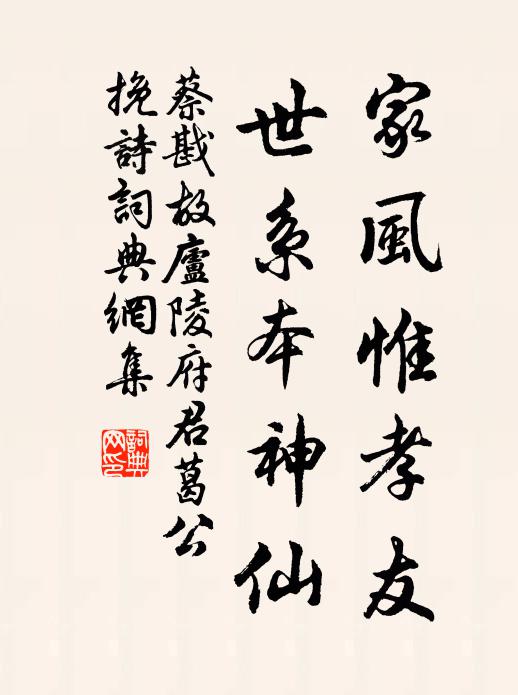 家風惟孝友
世系本神仙
蔡戡故廬陵府君葛公
挽詩詞典網集
詞典网印